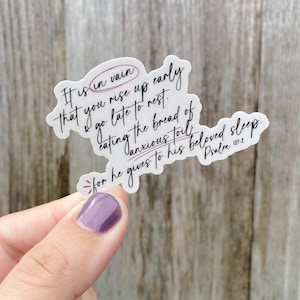 It is in vain
that you rise up early
& go late to rest,
eating the bread of
anxious toil;
for he gives to his beloved sleep.
Psalm 127:2